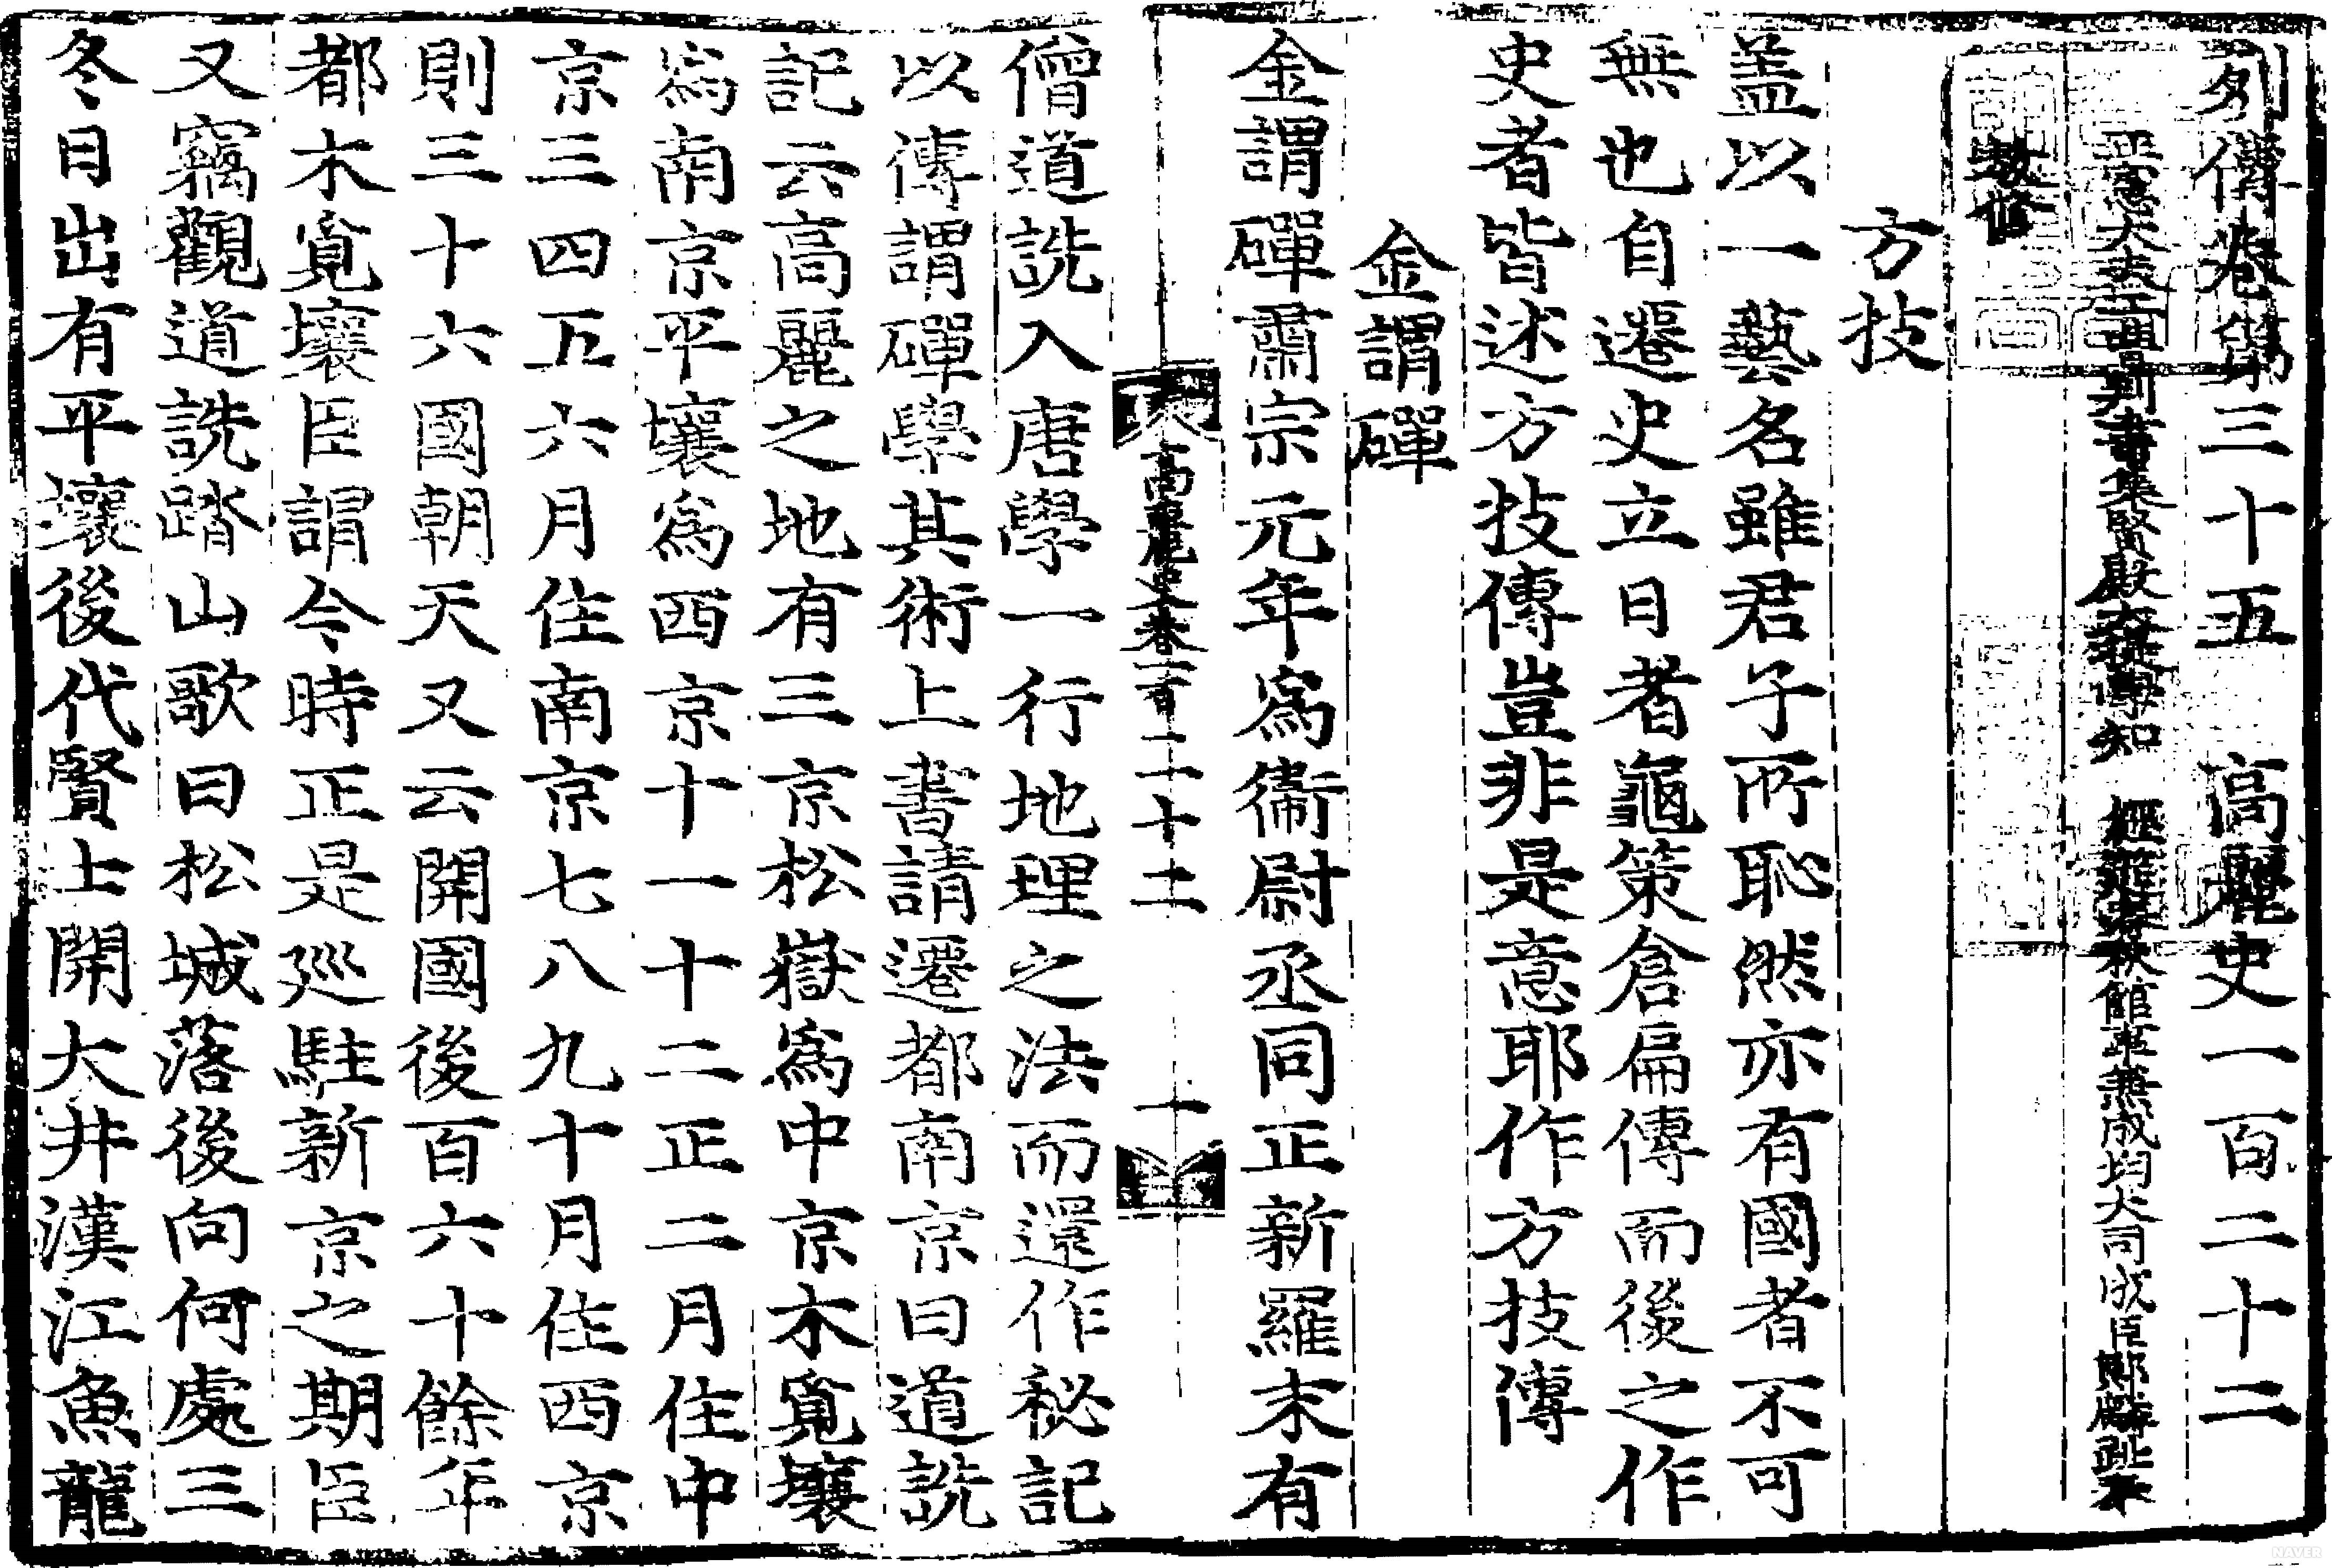 列傳卷第三十五 高麗史一百二十二
正憲大夫工曹判書集賢殿大提學知 經筵春秋館事兼成均大司成臣鄭麟趾奉
敎修
方技
盖以一藝名雖君子所恥然亦有國者不可
無也自遷史立日者龜策倉扁傳而後之作
史者皆述方技傳豈非是意耶作方技傳
金謂磾
金謂磾肅宗元年爲衞尉丞同正新羅末有
高麗史卷一百二十二 一
僧道詵入唐學一行地理之法而還作秘記
以傳謂磾學其術上書請遷都南京曰道詵
記云高麗之地有三京松嶽爲中京木覓壤
爲南京平壤爲西京十一十二正二月住中
京三四五六月住南京七八九十月住西京
則三十六國朝天又云開國後百六十餘年
都木覓壤臣謂今時正是廵駐新京之期臣
又竊觀道詵踏山歌曰松城落後向何處三
冬日出有平壤後代賢士開大井漢江魚龍
NAVER